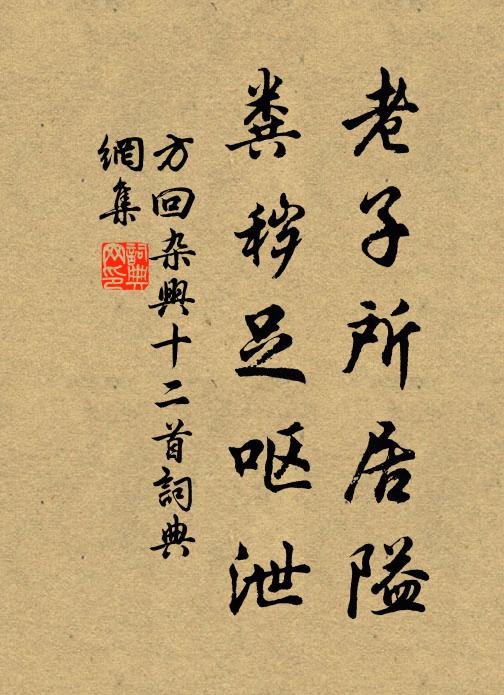 老子所居隘
粪秽足呕泄
方回杂興十二首詞典
網集
詞典
网印